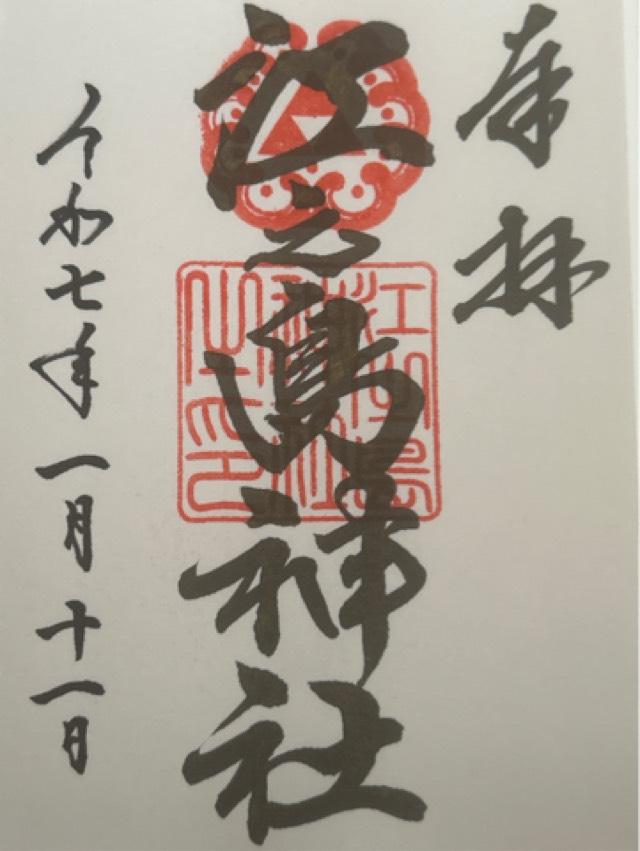 奉拝
江之島神社
江島神社之印
令和七年一月十一日